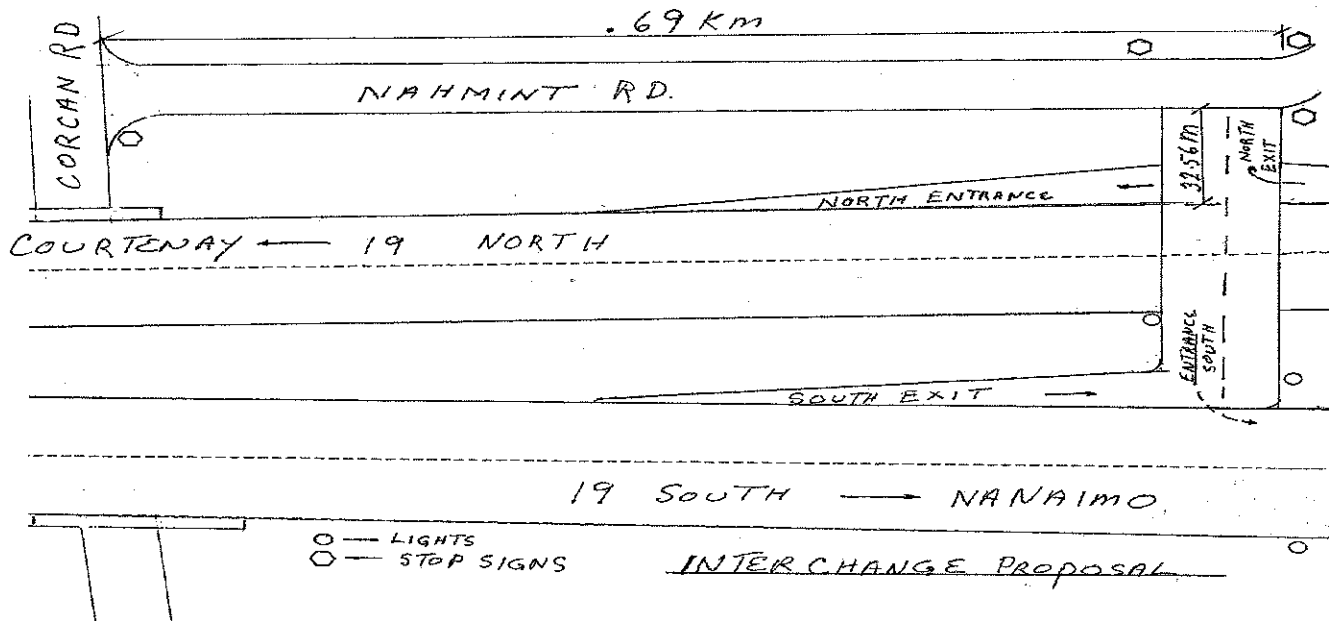 .69 Km
CORCAN RD
NAHMINT RD.
32.56M
NORTH
EXIT
NORTH ENTRANCE
COURTENAY ← 19 NORTH
ENTRANCE
SOUTH
SOUTH EXIT
19 SOUTH → NANAIMO
LIGHTS
STOP SIGNS
INTERCHANGE PROPOSAL